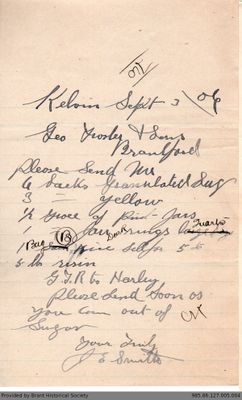 Kelvin Sept 3 / 06
Geo Foster & Sons
Brantford
Please Send Me
6 sacks Granulated Sug
3 — Yellow
1/2 Groce of Pint Jars
1 " Jar rings
Quarts
1 Bag (B) Dark 5 c
5 lb rosin
G.T.R to Harley
Please Send Soon as
You Can out of
Sugar
Your Truly
J E Smith
Provided by Brant Historical Society
985.66.127.005.004